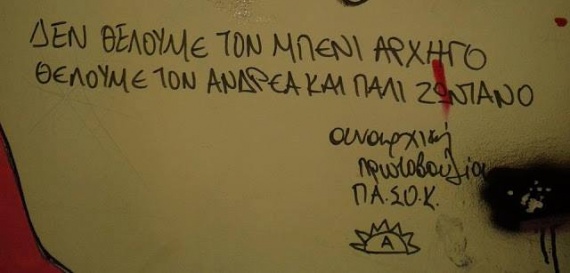 ΔΕΝ ΘΕΛΟΥΜΕ ΤΟΝ ΜΠΕΝΙ ΑΡΧΗΓΟ
ΘΕΛΟΥΜΕ ΤΟΝ ΑΝΔΡΕΑ ΚΑΙ ΠΑΛΙ ΖΩΝΤΑΝΟ
αναρχική
πρωτοβουλία
ΠΑ.ΣΟ.Κ.
Α